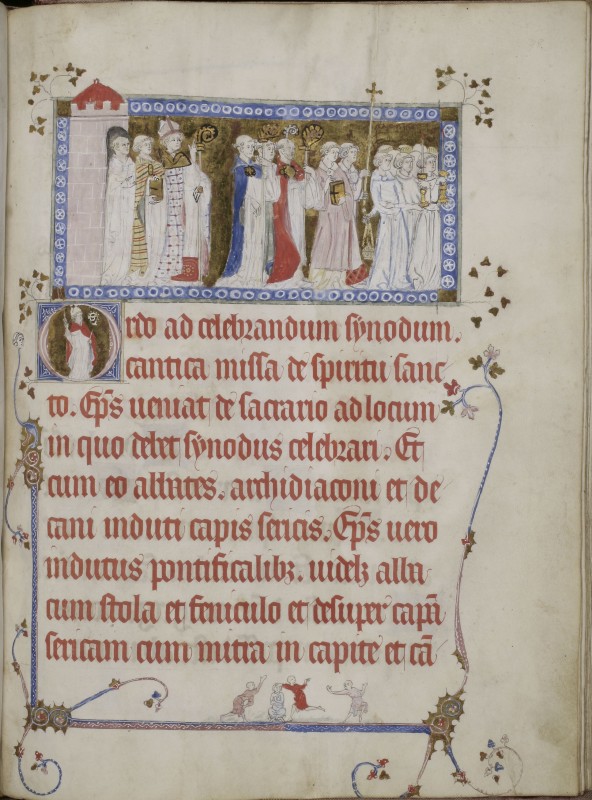 Ordo ad celebrandum synodum.
cantica missa de spiritu sanc
to. Ep̄s ueniat de sacrario ad locum
in quo debet synodus celebrari. Et
cum eo abbates. archidiaconi et de
cani induti capis sericis. Ep̄s uero
indutus pontificalibꝫ. uidelꝫ alba
cum stola et feniculo et desuper capā
sericam cum mitra in capite et cā